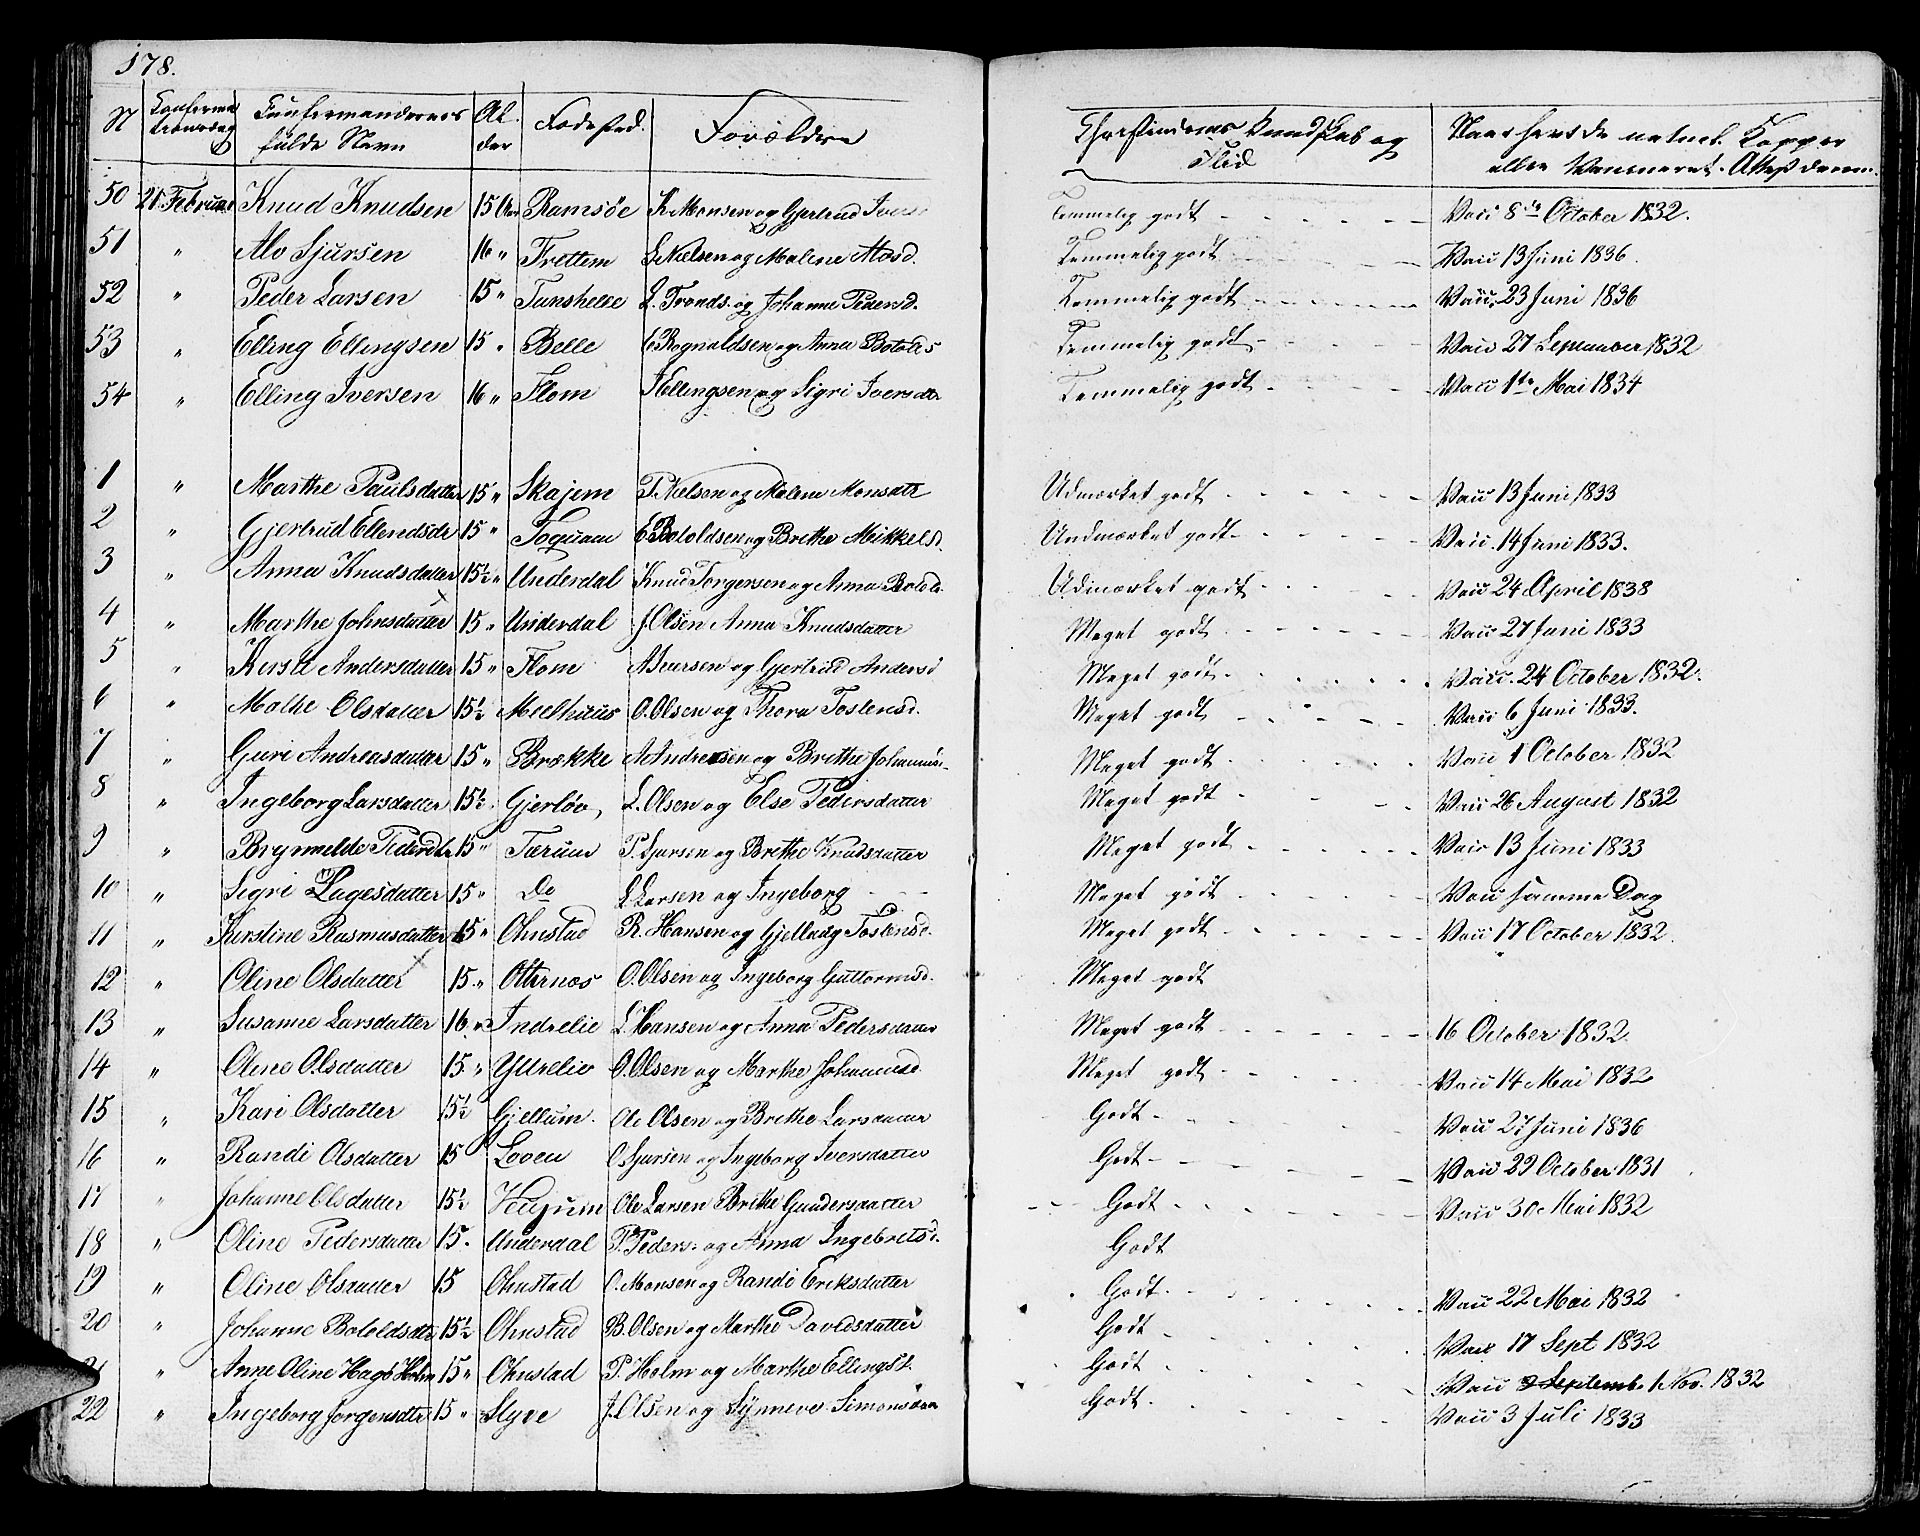 178.
N Konfermationsdag Confermandernes fulde Navn Alder Fødested. Forældre Christendoms Kundskab og Flid Naar havt de naturl. Kopper eller Vaccineret. Attest derom.
50 21 Februar Knud Knudsen 15 Aar Ramsøe K Monsen og Gjerlaud Ivers Temmelig godt Vacc 8de October 1832.
51 " Alo Sjursen 16 " Frettem S. Nielsen og Malene Alosd. Temmelig godt Vacc 13 Juni 1836.
52 " Peder Larsen 15 " Tunshelle L. Tronds. og Johanne Pedersd. Temmelig godt Vacc. 23 Juni 1836
53 " Elling Ellingsen 15 " Belle E Rognaldsen og Anna Botolds Temmelig godt Vacc 27 September 1832
54 " Elling Iversen 16 " Flom I Ellingsen og Sigri Iversdtr Temmelig godt Vacc 1te Mai 1834
1 " Marthe Paulsdatter 15 " Skajem P. Nielsen og Malene Monsdtr Udmærket godt Vacc 13 Juni 1833
2 " Gjertrud Ellendsdr 15 " Toquam E Botoldsen og Brethe Mikkelsd. Undmærket godt Vacc. 14 Juni 1833.
3 " Anna Knudsdatter 15½ " Underdal Knud Torgersen og Anna Botold Udmærket godt Vacc 24 April 1838
4 " Marthe Johnsdatter 15 " Underdal J. Olsen Anna Knudsdatter Meget godt Vacc 27 Juni 1833
5 " Kirsti Andersdatter 15 " Flom A Iversen og Gjertrud Andersd Meget godt Vacc. 24 October 1832.
6 " Malhe Olsdatter 15½ Meelhuus O. Olsen og Thora Tostensd. Meget godt Vacc 6 Juni 1833.
7 " Guri Andreasdatter 15 " Brække A Andresen og Brethe Johannes Meget godt Vacc 1 October 1832
8 " Ingeborg Larsdatter 15½ Gjerløv, L. Olsen og Else Pedersdatter Meget godt Vacc 26 August 1832
9 " Brynnelde Pedersdtr 15 " Tærum P. Sjursen og Brethe Knudsdatter Meget godt Vacc 13 Juni 1833
10 " Sigri Lagesdatter 15 " Do L Larsen og Ingeborg Meget godt Vacc samme Dag
11 " Kirstine Rasmusdatter 15 " Ohnstad R. Hansen og Gjellaug Tostensd. Meget godt Vacc 17 October 1832.
12 " Oline Olsdatter 15 " Otternæs O. Olsen og Ingeborg Guttormsd. Meget godt
13 " Susanne Larsdatter 16 " Indrelie L Hansen og Anna Pedersdatter Meget godt 16 October 1832.
14 " Oline Olsdatter 15 " Yttrelie O. Olsen og Marthe Johannesd. Meget godt Vacc 14 Mai 1832
15 " Kari Olsdatter 15½ Gjellum. Ole Olsen og Brethe Larsdatter Godt Vacc 27 Juni 1836
16 " Randi Olsdatter 15 Loven O Sjursen og Ingeborg Iversdatter Godt Vacc 29 October 1831
17 " Johanne Olsdatter 15½ Hujum Ole Larsen Brethe Gundersdatter Godt Vacc 30 Mai 1832
18 " Oline Pedersdatter 15. Underdal P. Peders. og Anna Ingebretsd. Godt
19 " Oline Olsdatter 15 Ohnstad O. Monsen og Randi Eriksdatter Godt Vacc 22 Mai 1832
20 " Johanne Botoldsdtr 15½ Ohnstad B. Olsen og Marthe Davidsdatter Godt Vacc 17 Sept 1832
21 " Anne Oline Hags Holm 15 " Ohnstad P. Holm og Marthe Ellingsd. Godt Vacc 9 Septemb. 1 Nov. 1832
22 " Ingeborg Jorgensdtr 15 " Styve J. Olsen og Synneve Simonsdtr Godt Vacc 3 Juli 1833